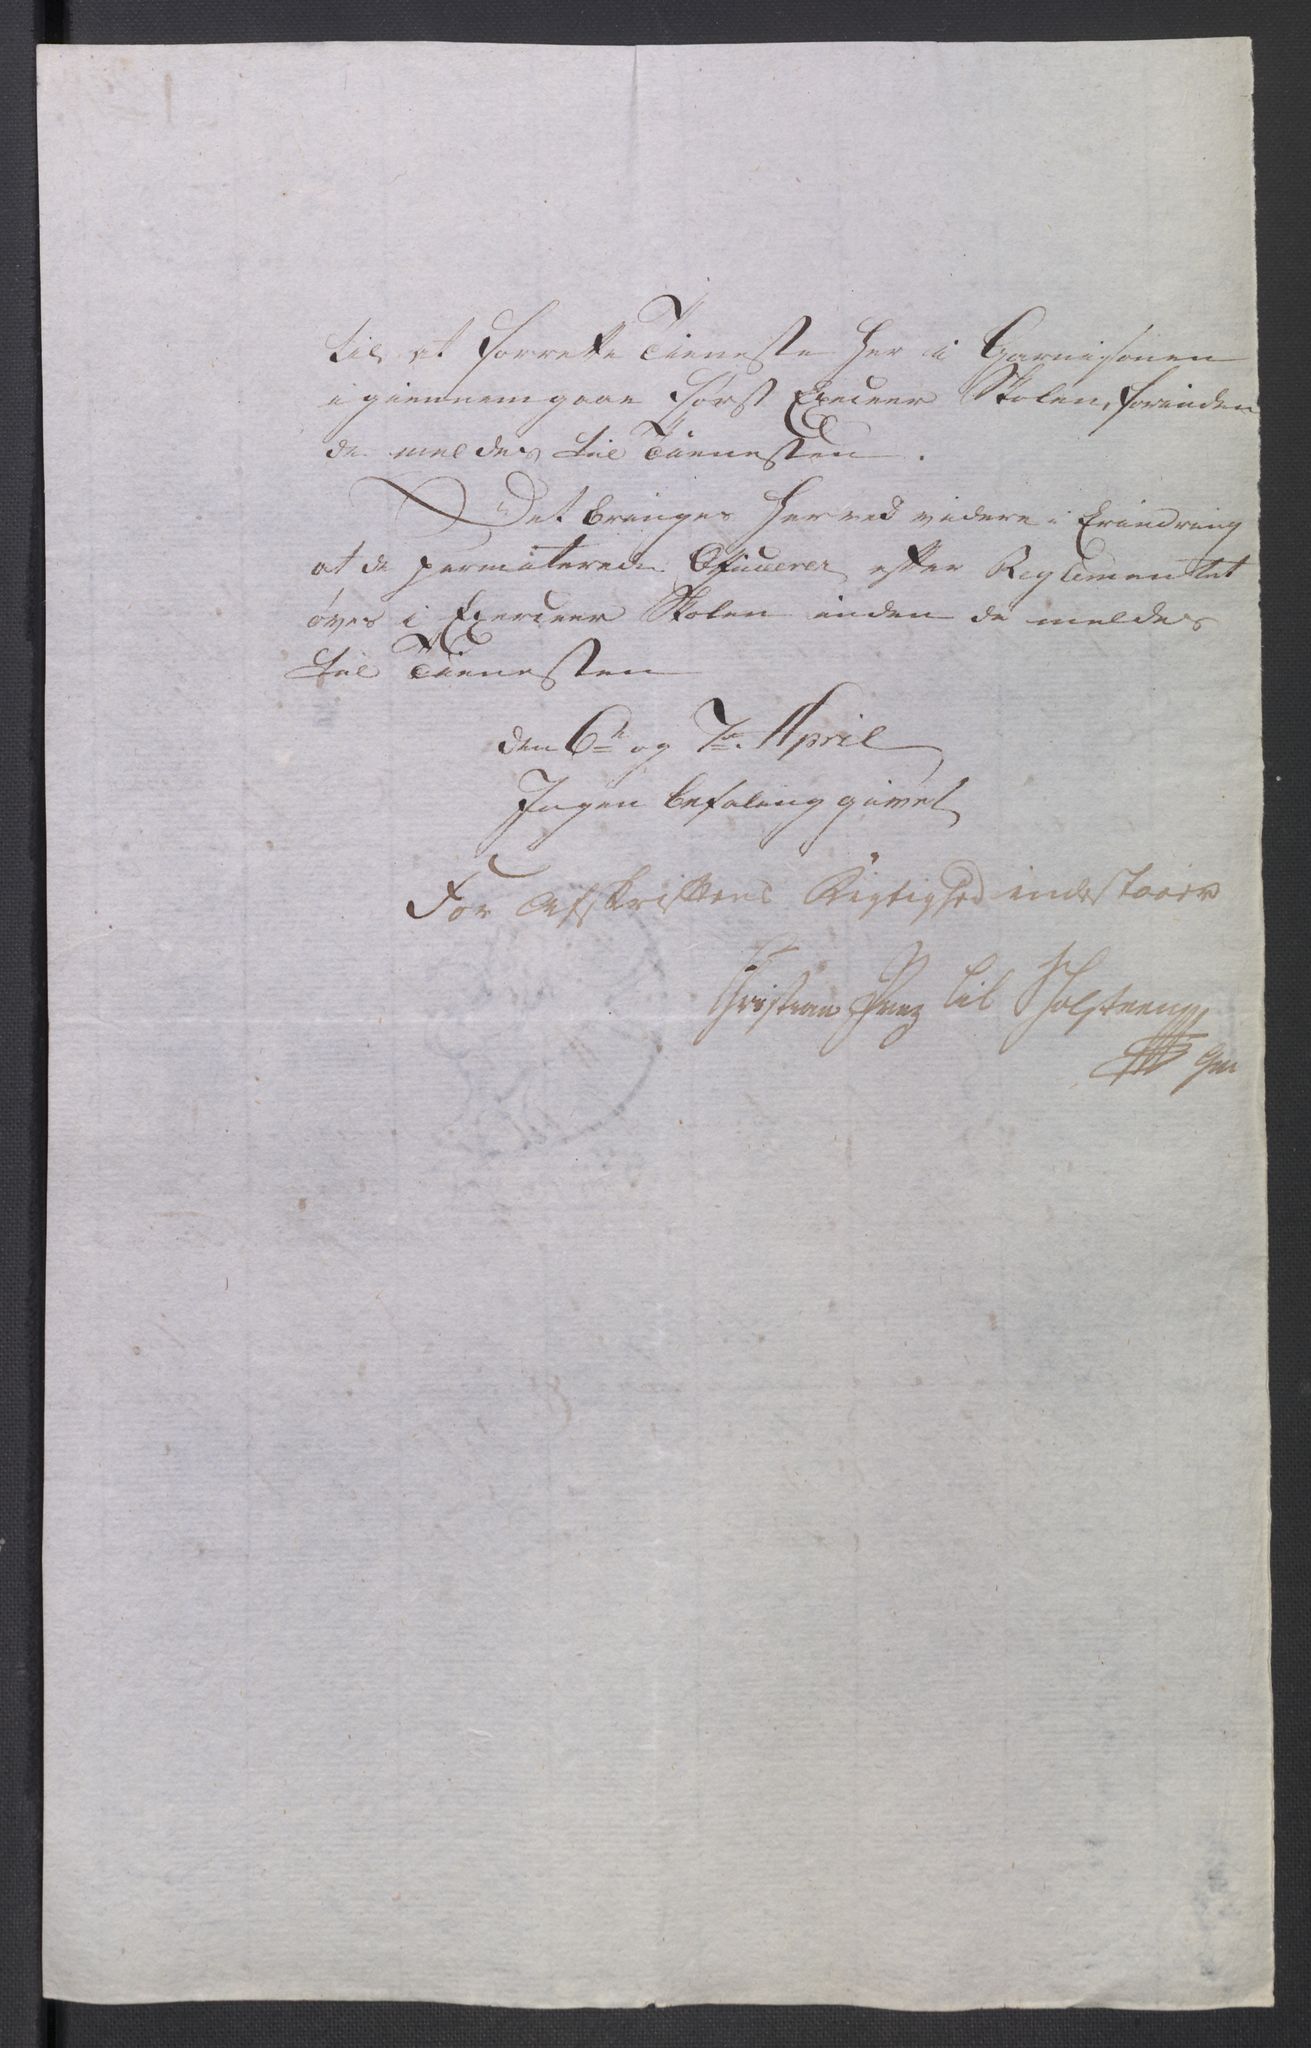 til at forrette Tieneste her i Garnisonen
igiennemgaae først Exerceer Skolen, forinden
de meldes til Tienesten.
Det bringes herved videre i Erindring
at de permiterede Officerer efter Reglementet
øves i Exerceer Skolen inden de meldes
til Tienesten
den 6te og 7de April
Ingen befaling givet
For Afskriftens Rigtighed indestaaer
Christian Prinz til Holsteen